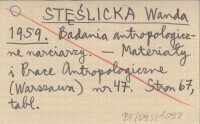 STĘŚLICKA Wanda
1959. Badania antropologicz-
ne narciarzy. — Materiały
i Prace Antropologiczne
(Warszawa) nr 47. Stron 67,
tabl.